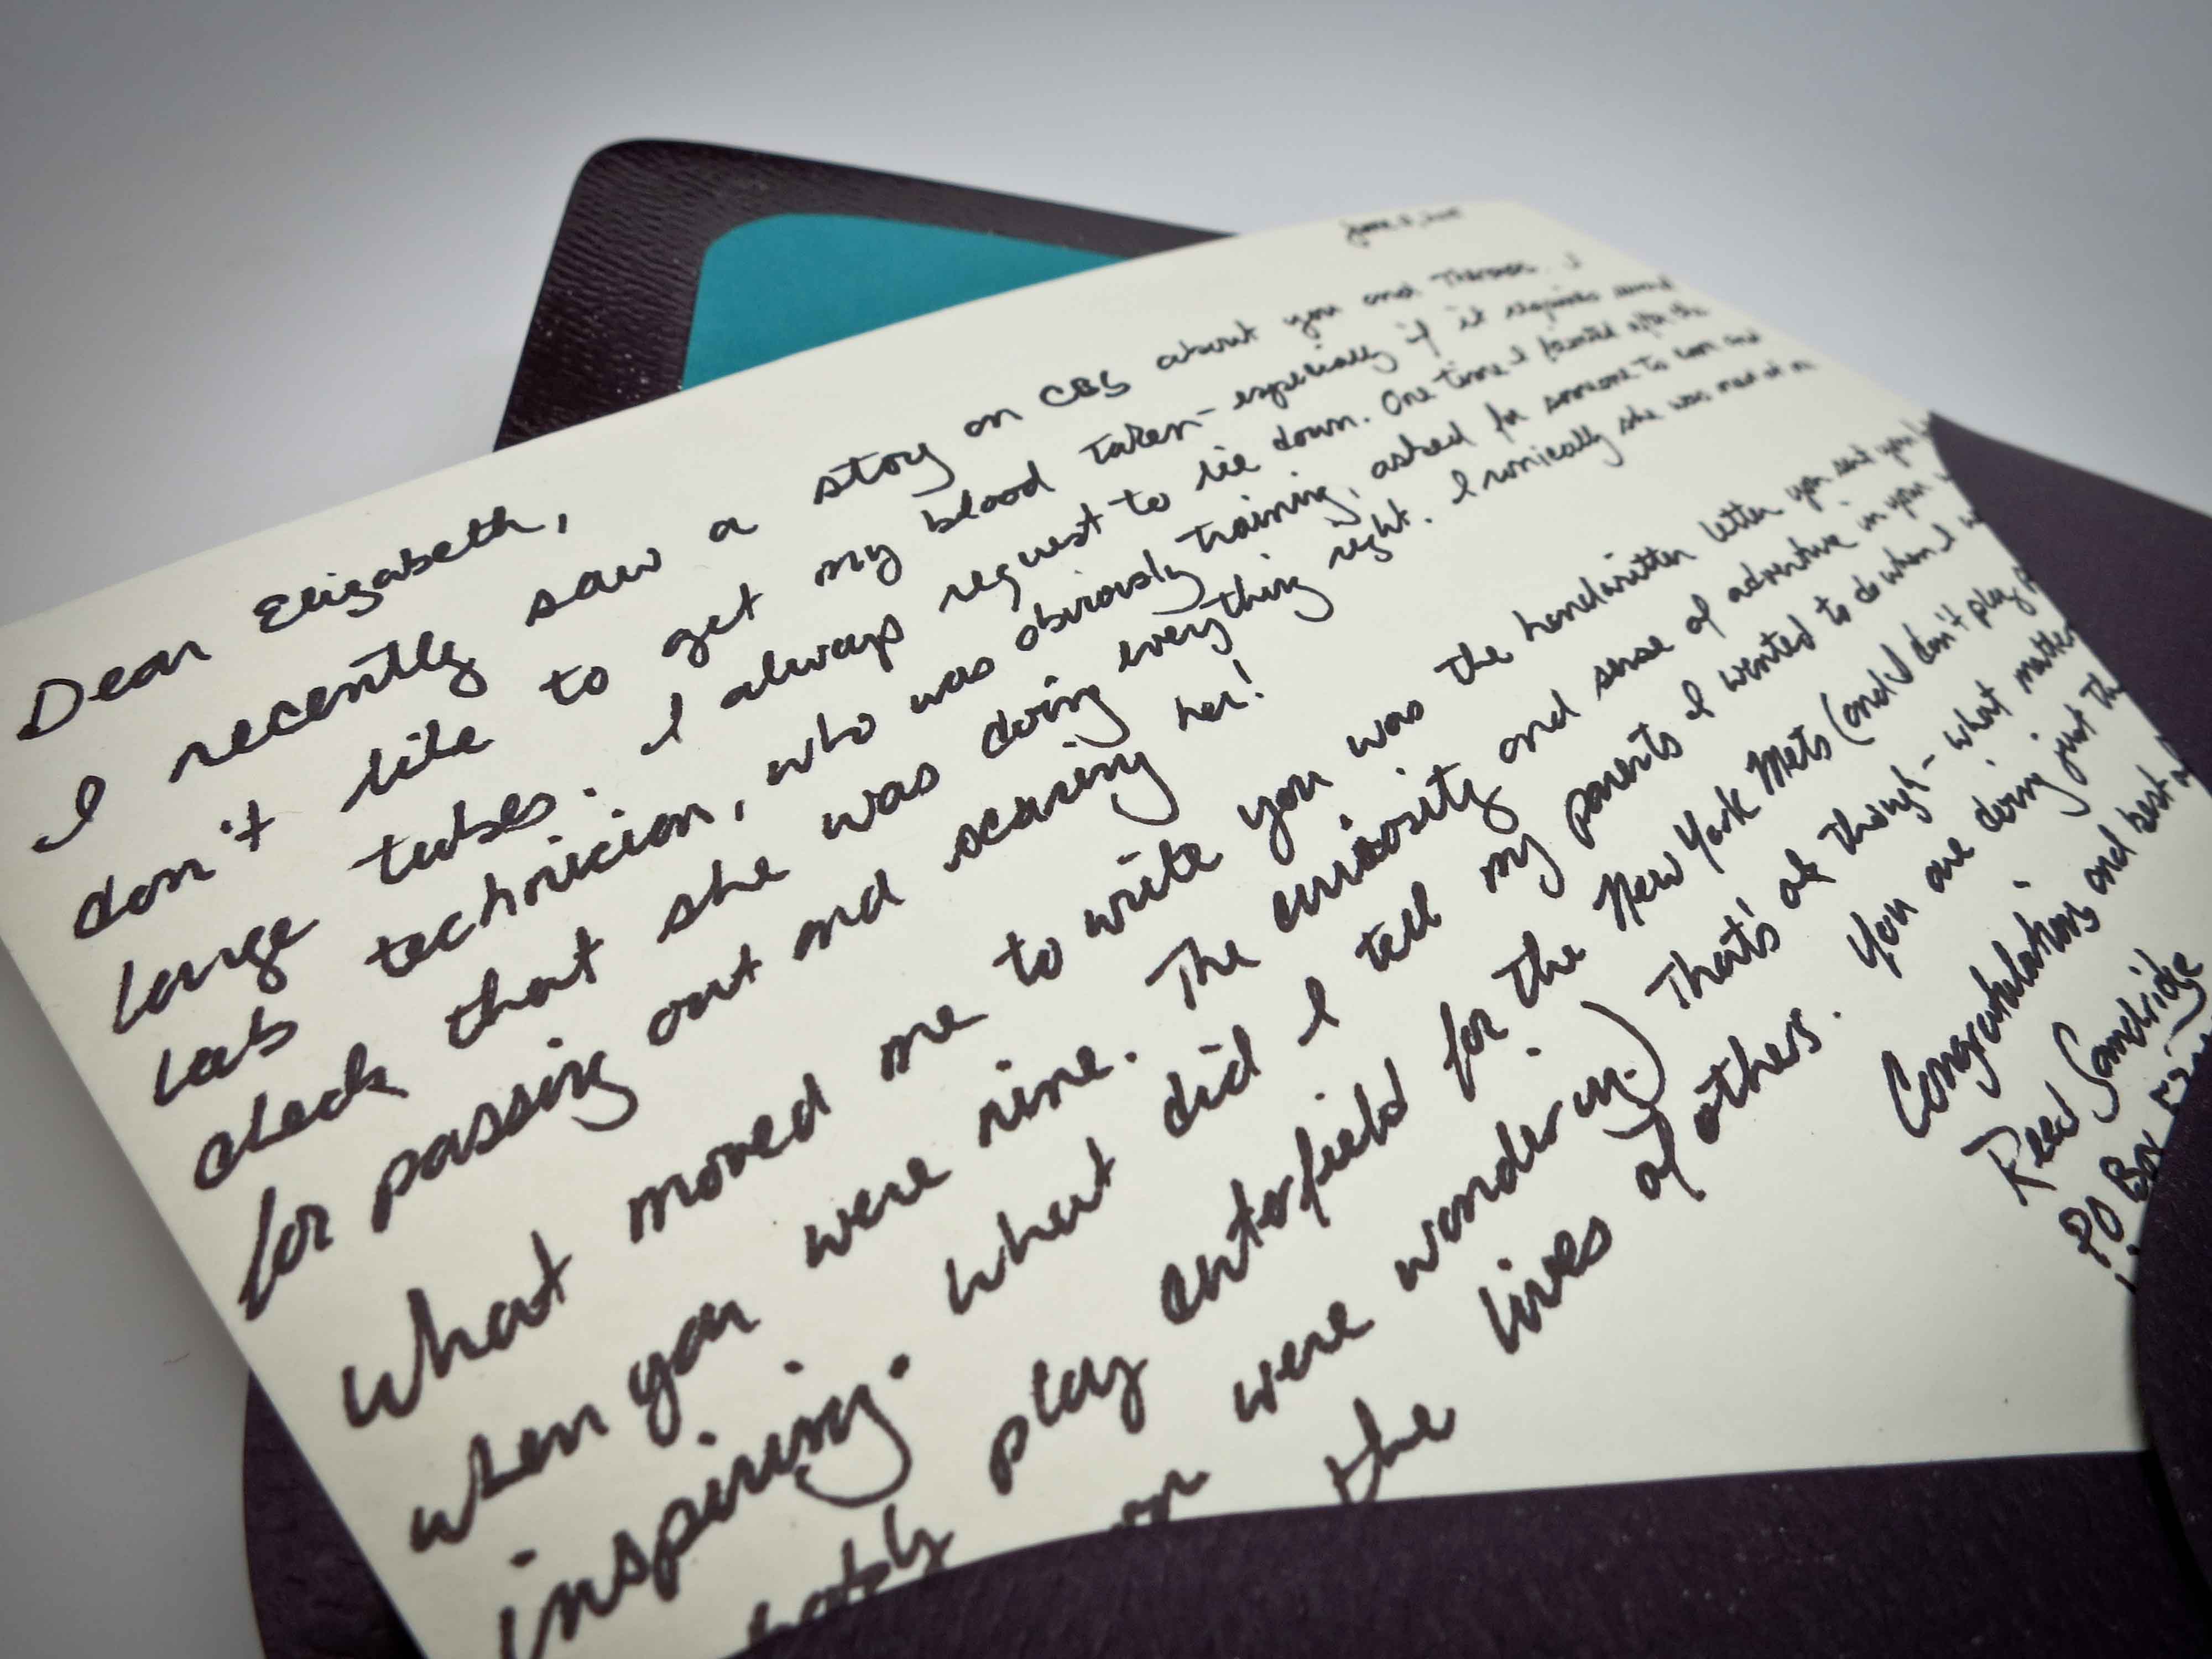 Dear Elizabeth,
I recently saw a story on CBS about you and Theranos. I
don't like to get my blood taken - especially if it requires several
large tubes. I always request to lie down. One time I fainted after the
lab technician, who was obviously training, asked for someone to come and
check that she was doing everything right. Ironically she was mad at me
for passing out and scaring her!
What moved me to write you was the handwritten letter you sent your
when you were nine. The curiosity and sense of adventure in your
inspiring. What did I tell my parents I wanted to do when I
play centerfield for the New York Mets (and I don't play
were wondering.) That's ok though - what matters
the lives of others. You are doing just
Congratulations and best
Reed Sandridge
PO Box